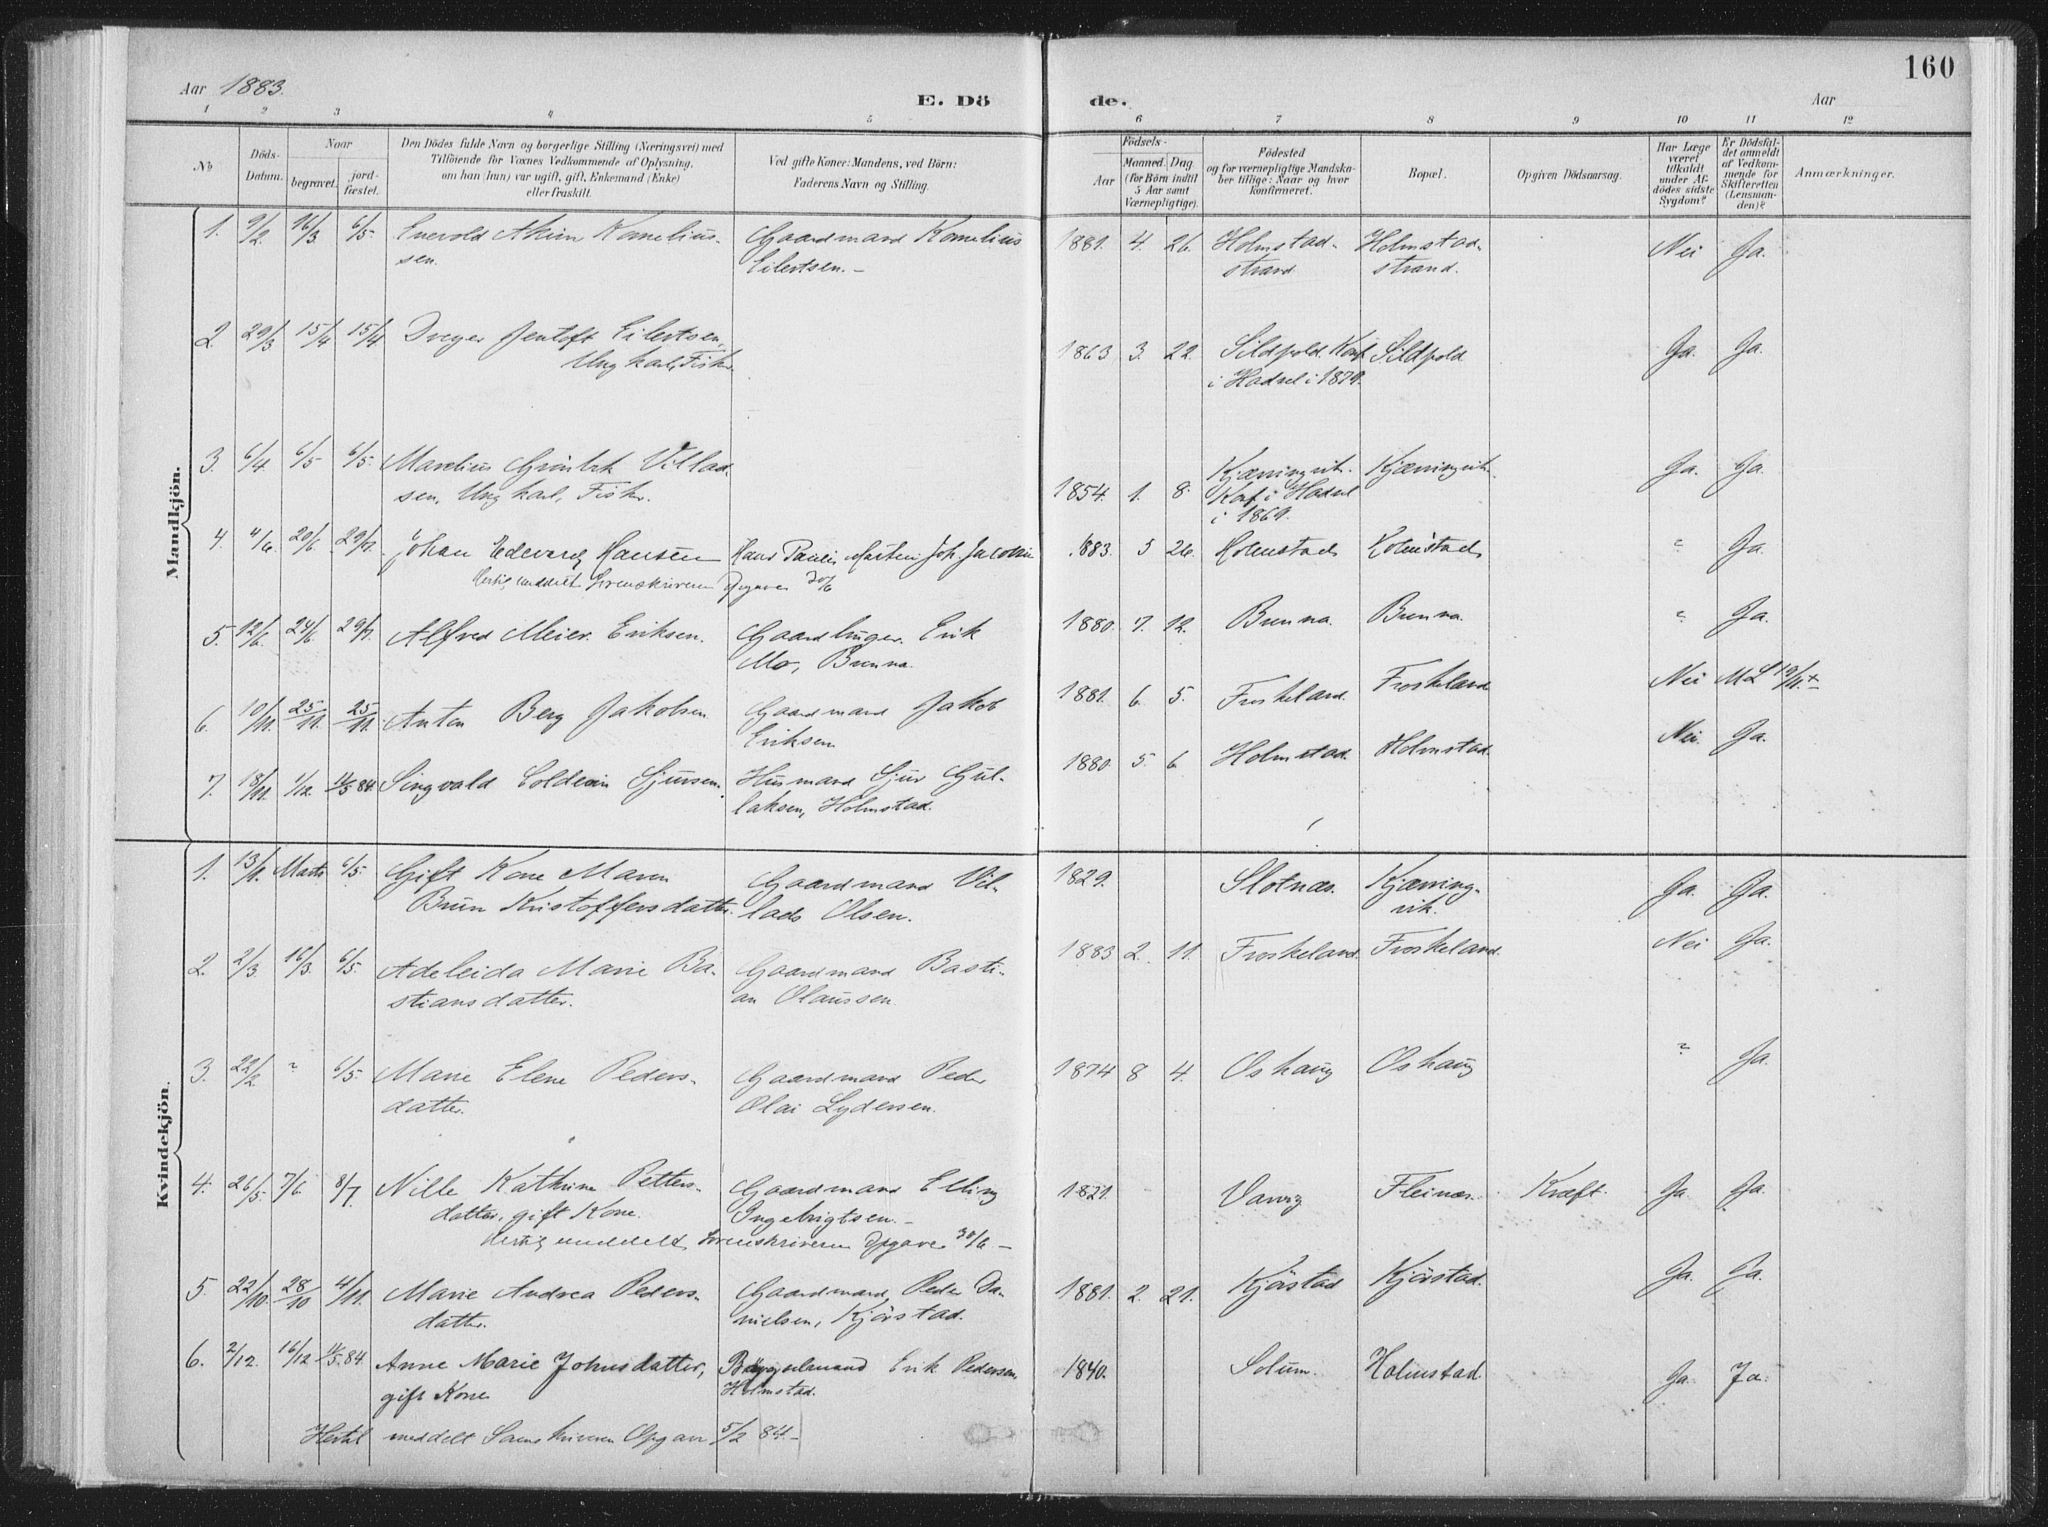 160
Aar 1883.
E. Döde.
Aar
1 2 3 4 5 6 7 8 9 10 11 12
No
Döds-Datum.
Naar
begravet.
jordfæstet.
Den Dödes fulde Navn og borgerlige Stilling (Næringsvei) med
Tilföiende for Voxnes Vedkommende af Oplysning,
om han (hun) var ugift, gift, Enkemand (Enke)
eller fraskilt.
Ved gifte Koner: Mandens, ved Börn:
Faderens Navn og Stilling.
Födsels-
Aar
Maaned. Dag.
(for Börn indtil
5 Aar samt
Værnepligtige).
Födested
og for værnepligtige Mandska-
ber tillige: Naar og hvor
konfirmeret.
Bopæl.
Opgiven Dödsaarsag.
Har Læge
været
tilkaldt
under Af-
dödes sidste
Sygdom?
Er Dödsfal-
det anmeldt
af Vedkom-
mende for
Skifteretten
(Lensman-
den)?
Anmærkninger.
Mandkjön.
1. 9/2. 16/3. 6/5. Enevold Akim Kornelius- Gaardmand Kornelius 1881. 4. 26. Holmstad- Holmstad- Nei Ja.
sen. Eilertsen.- strand strand.
2. 29/3 15/4 15/4. Dreyer Jentoft Eilertsen, 1863 3. 22. Sildpold. Konf. Sildpold Ja. Ja.
Ungkarl, Fisker. i Hadsel i 1879.
3. 6/4 6/5 6/5. Marelius Grönbek Villad- 1854. 1. 8. Kjærringvik. Kjærringvik. Ja. Ja.
sen, Ungkarl, Fisker. Konf. i Hadsel
i 1869.
4. 4/6. 20/6 29/7. Johan Edevard Hansen Hans Paulis Morten Joh. Jacobsen 1883. 5 26. Holmstad Holmstad " Ja.
Hertil meddelt Sorenskriveren Opgave 30/6
5. 12/6. 24/6. 29/7. Alfred Meier Eriksen. Gaardbruger Erik 1880. 7. 12. Brenna. Brenna. " Ja.
Mo, Brenna.
6. 10/11. 25/11. 25/11. Anton Berg Jakobsen Gaardmand Jakob 1881. 6. 5. Froskeland. Froskeland Nei
Eriksen
7. 18/11. 1/12. 11/5 84. Singvald Coldevin Sjursen. Husmand Sjur Gul- 1880. 5. 6. Holmstad. Holmstad. Nei. Ja.
laksen, Holmstad.
Kvindekjön.
1. 13/1. Marts 6/5. Gift Kone Maren Gaardmand Vil- 1829. Slotnæs. Kjærring- Ja. Ja.
Brun Kristoffersdatter. lads Olsen. vik.
2. 2/3. 16/3. 6/5. Adeleida Marie Ba- Gaardmand Basti- 1883 2. 11. Froskeland. Froskeland. Nei Ja.
stiansdatter. an Olaussen
3. 22/2. " 6/5. Marie Elene Peders- Gaardmand Peder 1874 8 4. Oshaug Oshaug " Ja.
datter. Olai Lydersen.
4. 26/5. 7/6. 8/7. Nille Kathrine Petters- Gaardmand Elling 1821. Varvig Fleinæs. Kræft. Ja. Ja.
datter, gift Kone. Ingebrigtsen.-
Hertil meddelt Sorenskriveren Opgave 30/6 -
5. 22/10. 28/10 4/11. Marie Andrea Peders- Gaardmand Peder Da- 1881. 2. 21. Kjörstad Kjörstad. Ja. Ja.
datter. nielsen, Kjörstad.
6. 2/12. 16/12 11/5.84. Anne Marie Johnsdatter, Bøygselmand Erik Pedersen, 1840. Solum. Holmstad. Ja. Ja.
gift Kone Holmstad.
Hertil meddelt Sorenskriveren Opgave 5/2 84.-